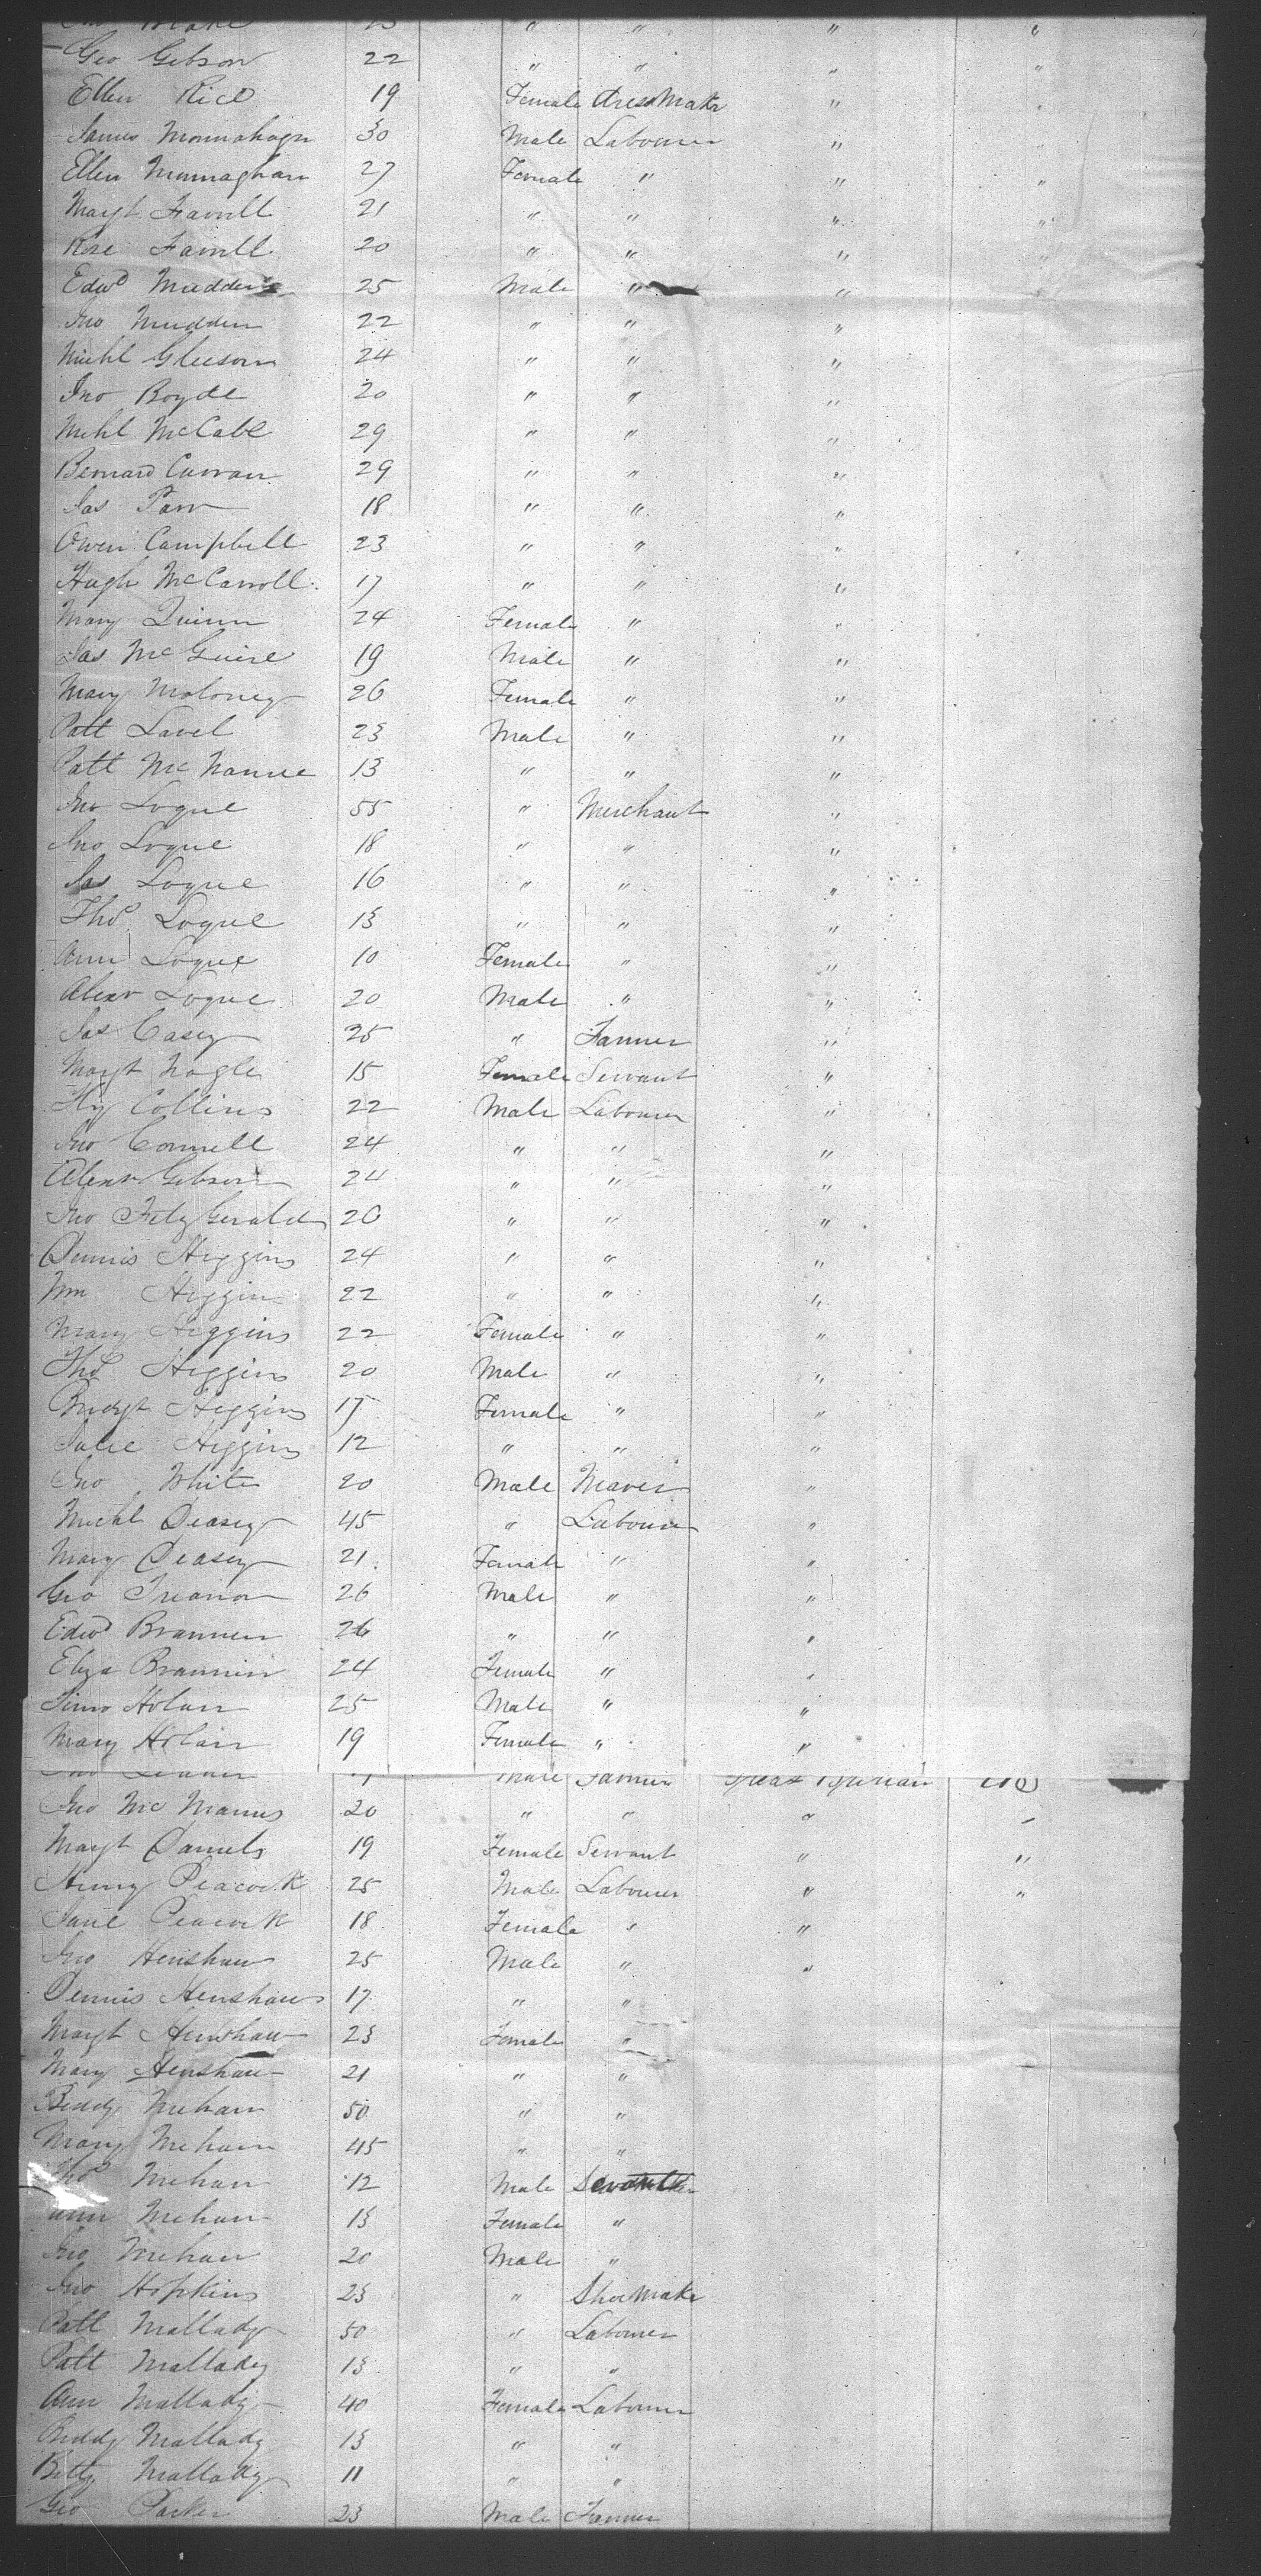 Geo Gibson 22 " " " "
Ellen Rice 19 Female dressMakr " "
James Monnahagn 30 Male Labourer " "
Ellen Munnaghan 27 Female " " "
Margt Farrell 21 " " " "
Rose Farrell 20 " " " "
Edwd Madden 25 Male " "
Jno Madden 22 " " "
Michl Gleeson 24 " " "
Jno Boyde 20 " " "
Michl McCabe 29 " " "
Bernard Curran 29 " " "
Jas Parr 18 " " "
Owen Campbell 23 " " "
Hugh McCarroll 17 " " "
Mary Quinn 24 Female " "
Jas McGuire 19 Male " "
Mary Moloney 26 Female " "
Patt Lavel 23 Male " "
Patt McNamee 13 " " "
Jno Logue 55 " Merchant "
Jno Logue 18 " " "
Jas Logue 16 " " "
Thos Logue 13 " " "
Ann Logue 10 Female " "
Alexr Logue 20 Male " "
Jas Casey 25 " Farmer "
Margt Nagle 15 Female Servant "
Hy Collins 22 Male Labourer "
Jno Connell 24 " " "
Alexr Gibson 24 " " "
Jno FitzGerald 20 " " "
Dennis Higgins 24 " " "
Wm Higgin 22 " " "
Mary Higgins 22 Female " "
Thos Higgins 20 Male " "
Bridgt Higgins 17 Female " "
Julie Higgins 12 " " "
Jno White 20 Male Weaver "
Michl Deasey 45 " Labourer "
Mary Deasey 21 Female " "
Geo Treanor 26 Male " "
Edwd Brannen 26 " " "
Eliza Brannin 24 Female " "
Timo Holan 25 Male " "
Mary Holan 19 Female " "
Male Farmer Great Britian
Jno McManus 20 " " " "
Margt Daniels 19 Female Servant " "
Henry Peacock 25 Male Labourer " "
Jane Peacock 18 Female " "
Jno Henshaw 25 Male " "
Dennis Henshaw 17 " "
Margt Henshaw 23 Female "
Mary Henshaw 21 " "
Biddy Mehan 50 " "
Mary Mehan 45 " "
Thos Mehan 12 Male
Ann Mehan 13 Female "
Jno Mehan 20 Male "
Jno Hopkins 23 " ShoeMakr
Patt Mallady 50 " Labourer
Patt Mallady 13 " "
Ann Mallady 40 Female Labourer
Biddy Mallady 13 " "
Betty Mallady 11 " "
Geo Parker 23 Male Farmer